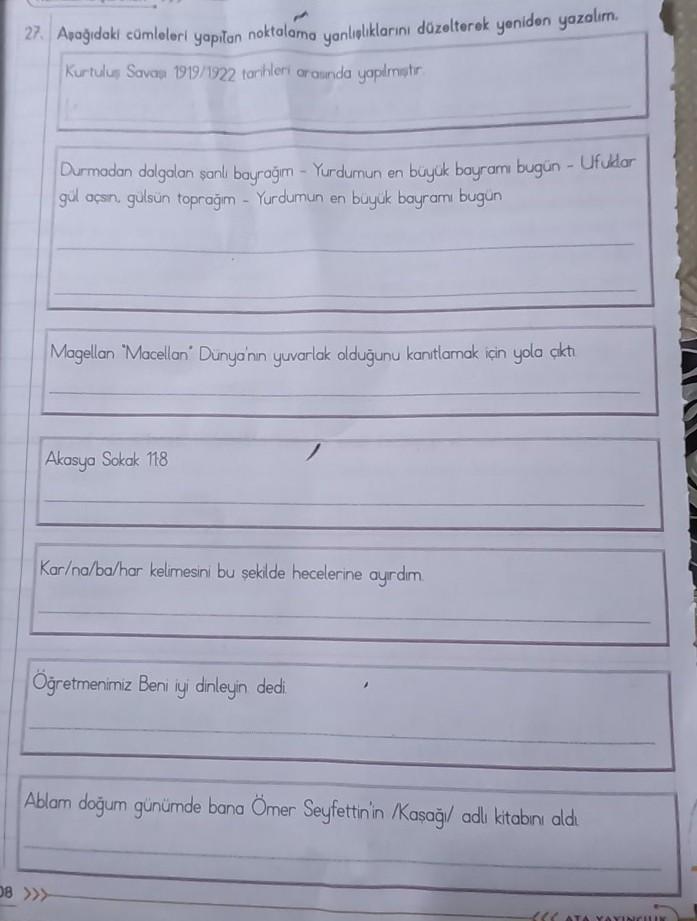 27. Aşağıdaki cümleleri yapılan noktalama yanlışlıklarını düzelterek yeniden yazalım.
Kurtuluş Savaşı 1919/1922 tarihleri arasında yapılmıştır.
Durmadan dalgalan şanlı bayrağım - Yurdumun en büyük bayramı bugün - Ufuklar
gül açsın, gülsün toprağım - Yurdumun en büyük bayramı bugün
Magellan "Macellan" Dünya'nın yuvarlak olduğunu kanıtlamak için yola çıktı.
Akasya Sokak 11-8
Kar/na/ba/har kelimesini bu şekilde hecelerine ayırdım.
Öğretmenimiz Beni iyi dinleyin. dedi.
Ablam doğum günümde bana Ömer Seyfettin'in /Kaşağı/ adlı kitabını aldı.
08 >>>
<<< ATA YAYINCILIK